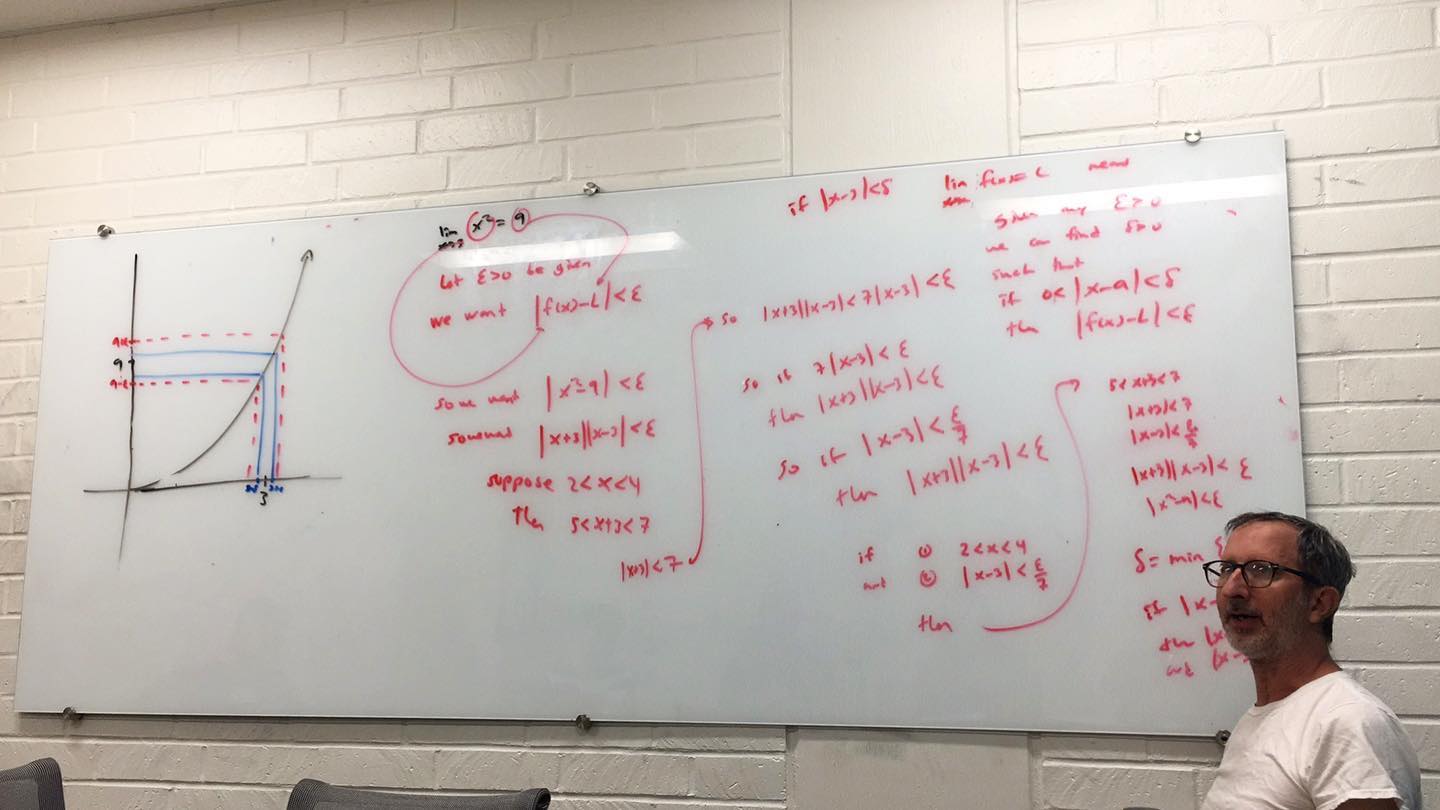 9+ε
9
9-ε
3-δ
3
3+δ
lim x² = 9
x→3
Let ε>0 be given
we want |f(x)-L|<ε
so we want |x²-9|<ε
so we want |x+3||x-3|<ε
suppose 2<x<4
then 5<x+3<7
|x+3|<7
so |x+3||x-3|<7|x-3|<ε
so if 7|x-3|<ε
then |x+3||x-3|<ε
so if |x-3|<ε/7
then |x+3||x-3|<ε
if ① 2<x<4
and ② |x-3|<ε/7
then
if |x-3|<δ
lim f(x)=L means
given any ε>0
we can find δ>0
such that
if 0<|x-a|<δ
then |f(x)-L|<ε
5<x+3<7
|x+3|<7
|x-3|<ε/7
|x+3||x-3|<ε
|x²-9|<ε
δ= min {
if |x-
then |x
and |x-3